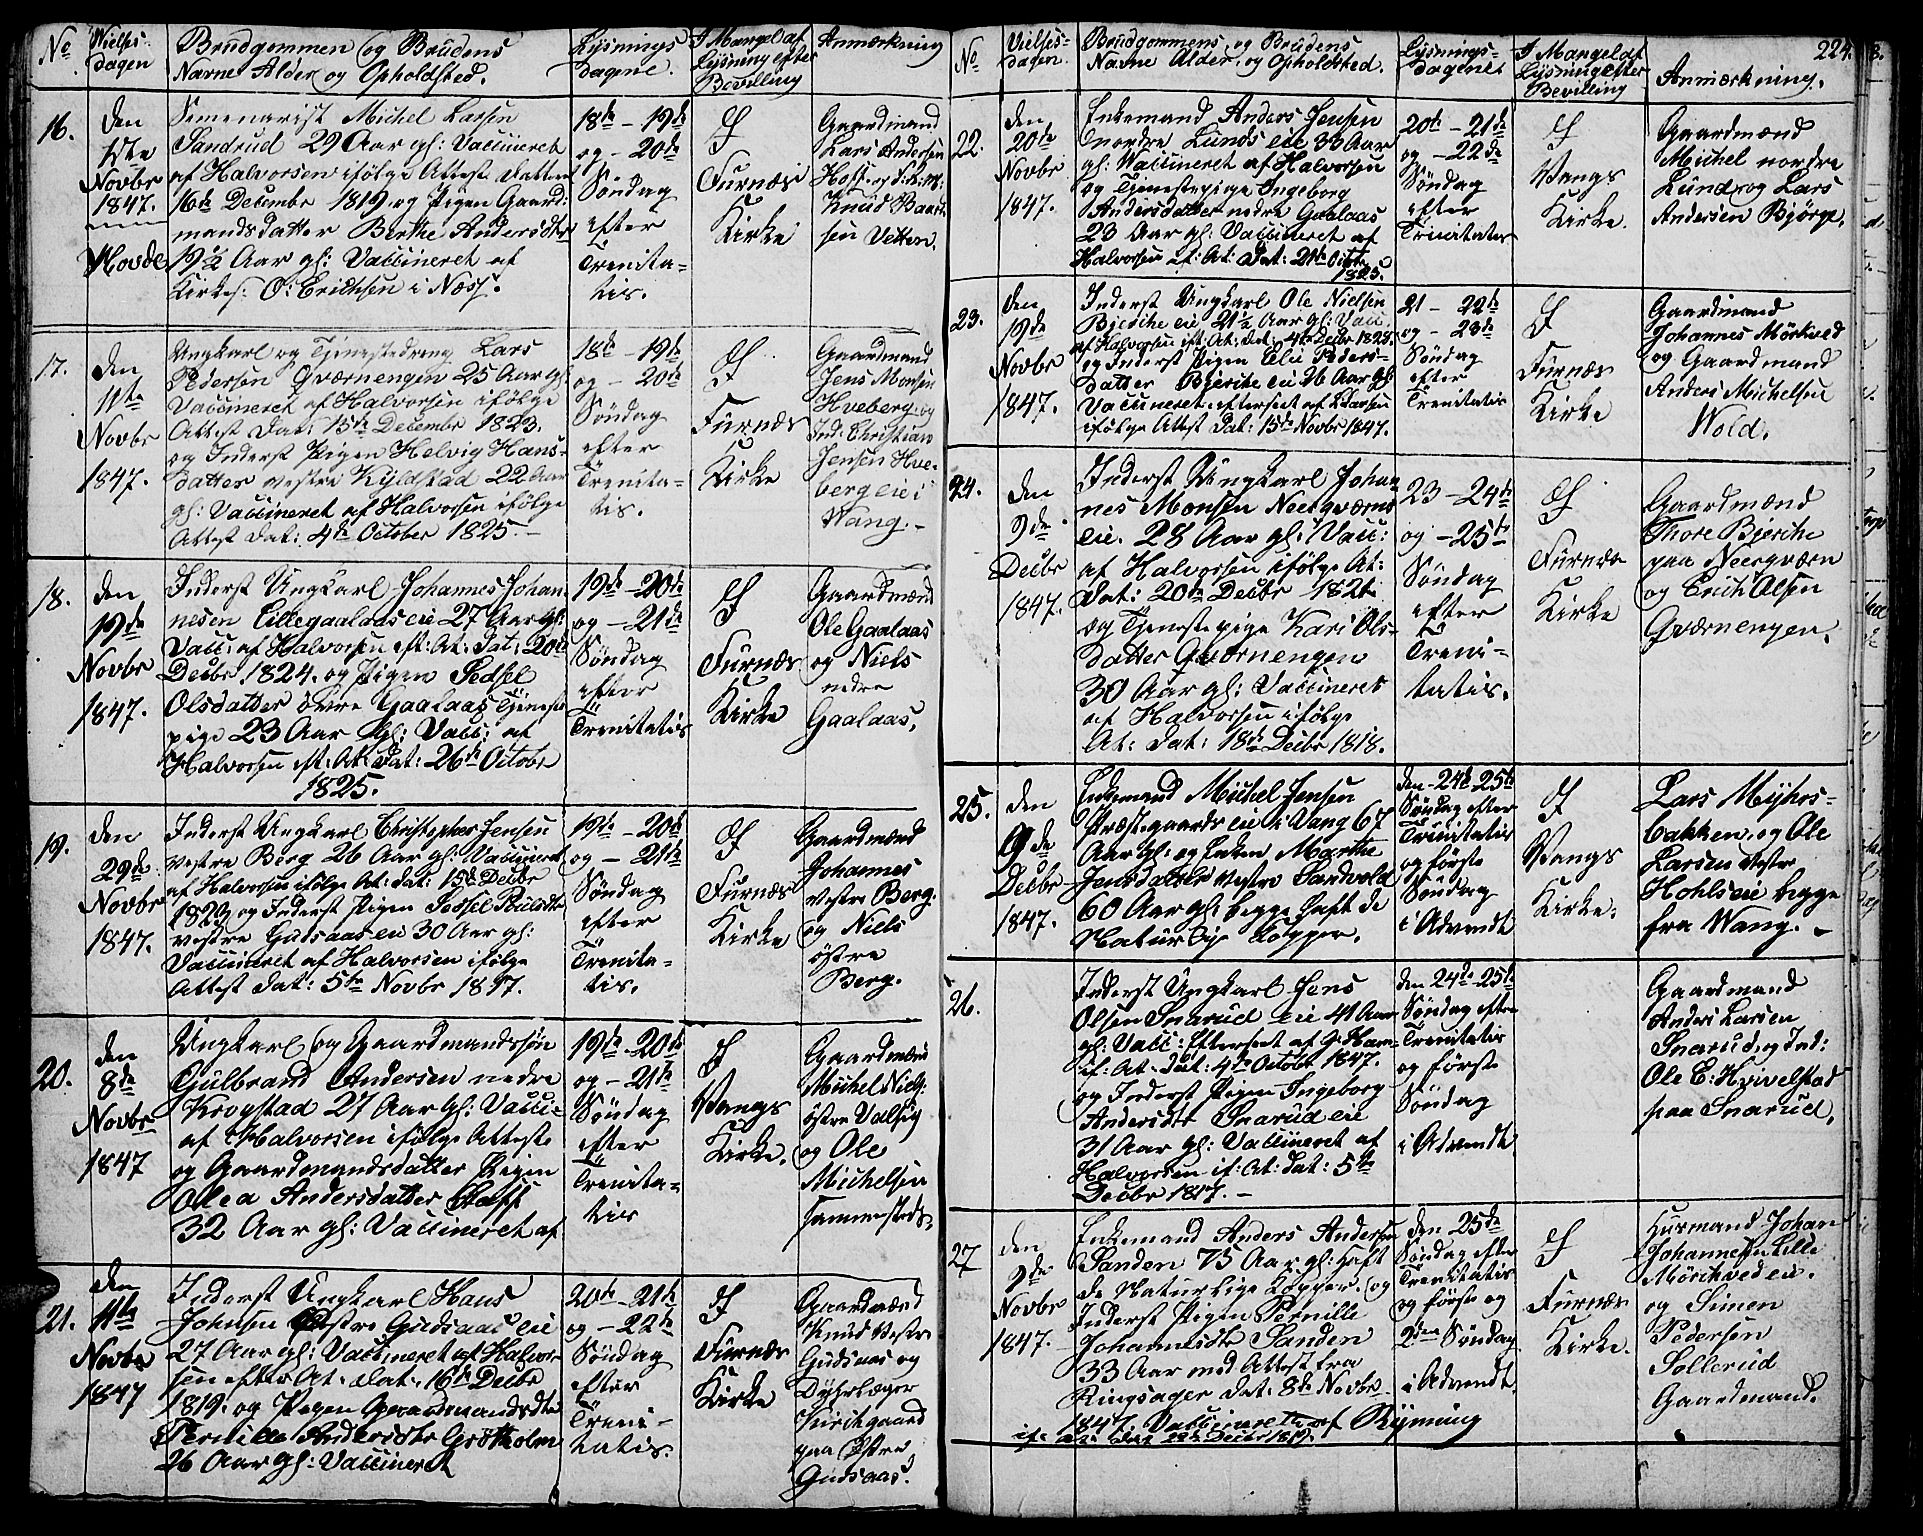 No
Vielses-
dagen
Brudgommen og Brudens
Navne Alder og Opholdsted.
Lysnings
Dagene.
I Mangel af
Lysning efter
Bevilling
Anmærkning
16.
den
1ste
Novbr
1847.
Hovde
Semenarist Michel Larsen
Sandrud 29 Aar gl: Vaccineret
af Halvorsen ifölge Attest datter
16de Decembr 1819 og Pigen Gaard:
mandsdatter Birthe Andersdtr
19½ Aar gl: Vaccineret af
Kirkes: O: Erichsen i Næss.
18de – 19de
og – 20de
Söndag
efter
Trenita=
tis.
I
Furnæs
Kirke
Gaardmænd
Lars Andersen
Knud Baard
sen Vetten.
17.
den
11te
Novbr
1847.
Ungkarl og Tjenestedreng Lars
Pedersen Qværnengen 25 Aar gl:
Vaccineret af Halvorsen ifölge
Attest Dat: 13de Decembr 1823.
og Inderst Pigen Helvig Hans=
datter vestre Kyldstad 22 Aar
gl: Vaccineret af Halvorsen ifölge
Attest Dat: 4de October 1825.–
18de – 19de
og – 20de
Söndag
efter
Trenita=
tis.
I
Furnæs
Kirke
Gaardmand
Jens Monsen
Hveberg og
Ind: Christian
Jensen Hve-
berg eie i
Vang.–
18.
den
19de
Novbr
1847.
Inderst Ungkarl Johannes Johan
nesen Lillegaalaas eie 27 Aar gl:
Vacc: af Halvorsen eft: At: Dat: 20de
Decbr 1824. og Pigen Sedsel
Olsdatter övre Gaalaas Tjeneste
pige 23 Aar gl: Vacc: af
Halvorsen eft: At: Dat: 26de Octobr
1825.
19de – 20de
og – 21de
Söndag
efter
Trenitatis
I
Furnæs
Kirke
Gaardmænd
Ole Gaalaas
og Niels
nedre
Gaalaas.
19.
den
29de
Novbr
1847.
Inderst Ungkarl Christopher Jensen
vestre Berg 26 Aar gl: Vaccineret
af Halvorsen ifölge At: dat: 15de Decbr
1823 og Inderst Pigen Sedsel Poulsdtr
vestre Gudsaas eie 30 Aar gl:
Vaccineret af Halvorsen ifölge
Attest dat: 5te Novbr 1817.
19de – 20de
og – 21de
Söndag
efter
Trenita=
tis.
I
Furnæs
Kirke
Gaardmænd
Johannes
vestre Berg.
og Niels
östre
Berg.
20.
den
8de
Novbr
1847
Ungkarl og Gaardmandssön
Gulbrand Andersen nedre
Krogstad 27 Aar gl: Vacci=
af Halvorsen ifölge Atteste
og Gaardmandsdatter Pigen
Olea Andersdatter Staff
32 Aar gl: Vaccineret af
19de – 20de
og – 21de
Söndag
efter
Trenita=
tis
I
Vangs
Kirke.
Gaardmænd
Michel Niels:
östre Valseg
og Ole
Michelsen
sammesteds.
21.
den
11te
Novbr
1847
Inderst Ungkarl Hans
Johnsen Östre Gudsaas eie
27 Aar gl: Vaccineret af Halvor
sen efter At: dat: 16de Decbr
1819. og Pigen Gaardmandsdtr
Pernille Andersdtr Grötholm
26 Aar gl: Vaccineret
20de – 21de
og – 22de
Söndag
efter
Treni-
tatis.
I
Furnæs
Kirke
Gaardmænd
Knud Vestre
Gudsaas og
Dÿhrlæger
Kirkgaard
paa Östre
Gudsaas.
No
Vielses-
dagen.
Brudgommens og Brudens
Navne Alder, og Opholdsted.
Lysnings-
Dagenes
I Mangel af
Lysning efter
Bevilling
Anmærkning.
224.
22.
den
20de
Novbr
1847.
Enkemand Anders Jensen
nordre Lunds eie 33 Aar
gl: Vaccineret af Halvorsen
og Tjenestepige Ingeborg
Andersdatter nedre Gaalaas
23 Aar gl: Vaccineret af
Halvorsen ef: At: Dat: 21de Octbr
1825.
20de – 21de
og – 22de
Söndag
efter
Trinitatis
I
Vangs
Kirke.
Gaardmænd
Michel nordre
Lund og Lars
Andersen Bjørge.
23.
den
19de
Novbr
1847.
Inderst Ungkarl Ole Nielsen
Bjerike eie 21½ Aar gl: Vacc
af Halvorsen ift: At: Dat: 4de Decbr 1828.
og Inderst Pigen Elie Peders-
datter Bjerike eie 26 Aar gl:
Vaccineret efterseet af Claussen
ifölge Attest Dat: 15de Novbr 1847.
21 – 22de
og – 23de
Söndag
efter
Trenitatis
I
Furnæs
Kirke
Gaardmand
Johannes Mörkved
og Gaardmand
Anders Michelsen
Wold.
24.
den
9de
Decbr
1847.
Inderst Ungkarl Johan-
nes Monsen Neerqværns
eie. 28 Aar gl: Vacc:
af Halvorsen ifölge At:
Dat: 20de Decbr 1821
og Tjenestepige Kari Ols-
datter Qværnengen
30 Aar gl: Vaccineret
af Halvorsen ifölge
At: Dat: 18de Decbr 1818.
23 – 24de
og – 25de
Söndag
efter
Treni-
tatis.
I
Furnæs
Kirke
Gaardmænd
Thore Bjerike
paa Neerqværn
og Erich Olsen
Qværnengen.
25.
den
9de
Decbr
1847.
Enkemand Michel Jensen
Præstegaards eie i Vang 67
Aar gl: og Enken Marthe
Jensdatter vestre Sandvold
60 Aar gl: begge haft de
Naturlige Kopper.
den 24de 25de
Söndag efter
Trinitatis
og förste
Söndag
i Advendt
I
Vangs
Kirke.
Lars Mÿhrs-
bakken og Ole
Larsen vestre
Hohls eie begge
fra Wang.–
26.
Inderst Ungkarl Jens
Olsen Snarud eie 41 Aar
gl: Vacc: Efterseet af G Ham-
if: At: Dat: 4de Octobr 1847.
og Inderst Pigen Ingeborg
Andersdtr Snarud eie
31 Aar gl: Vaccineret af
Halvorsen if: At: Dat: 5te
Decbr 1817.–
den 24de 25de
Söndag efter
Trenitatis
og förste
Söndag
i Advendt
Gaardmand
Anders Larsen
Snarud og Ind:
Ole E: Hvivelstad
paa Snarud.
27
den
9de
Novbr
1847.
Enkemand Anders Andersen
Sanden 75 Aar gl: haft
de Naturlige Kopper. og
Inderst Pigen Pernille
Johannesdtr Sanden
33 Aar med Attest fra
Ringsager Dat: 8de Novbr
1847. Vaccineret af Rÿnning
if: At: Dat 22de Decbr 1819.
den 25de
Söndag efter
Trenitatis
og förste og
2den Söndag
i Advendt
I
Furnæs
Kirke.
Huusmand Johan
Johannesen Lille
Mörkved eie.
og Simen
Pedersen
Sollerud
Gaardmand.